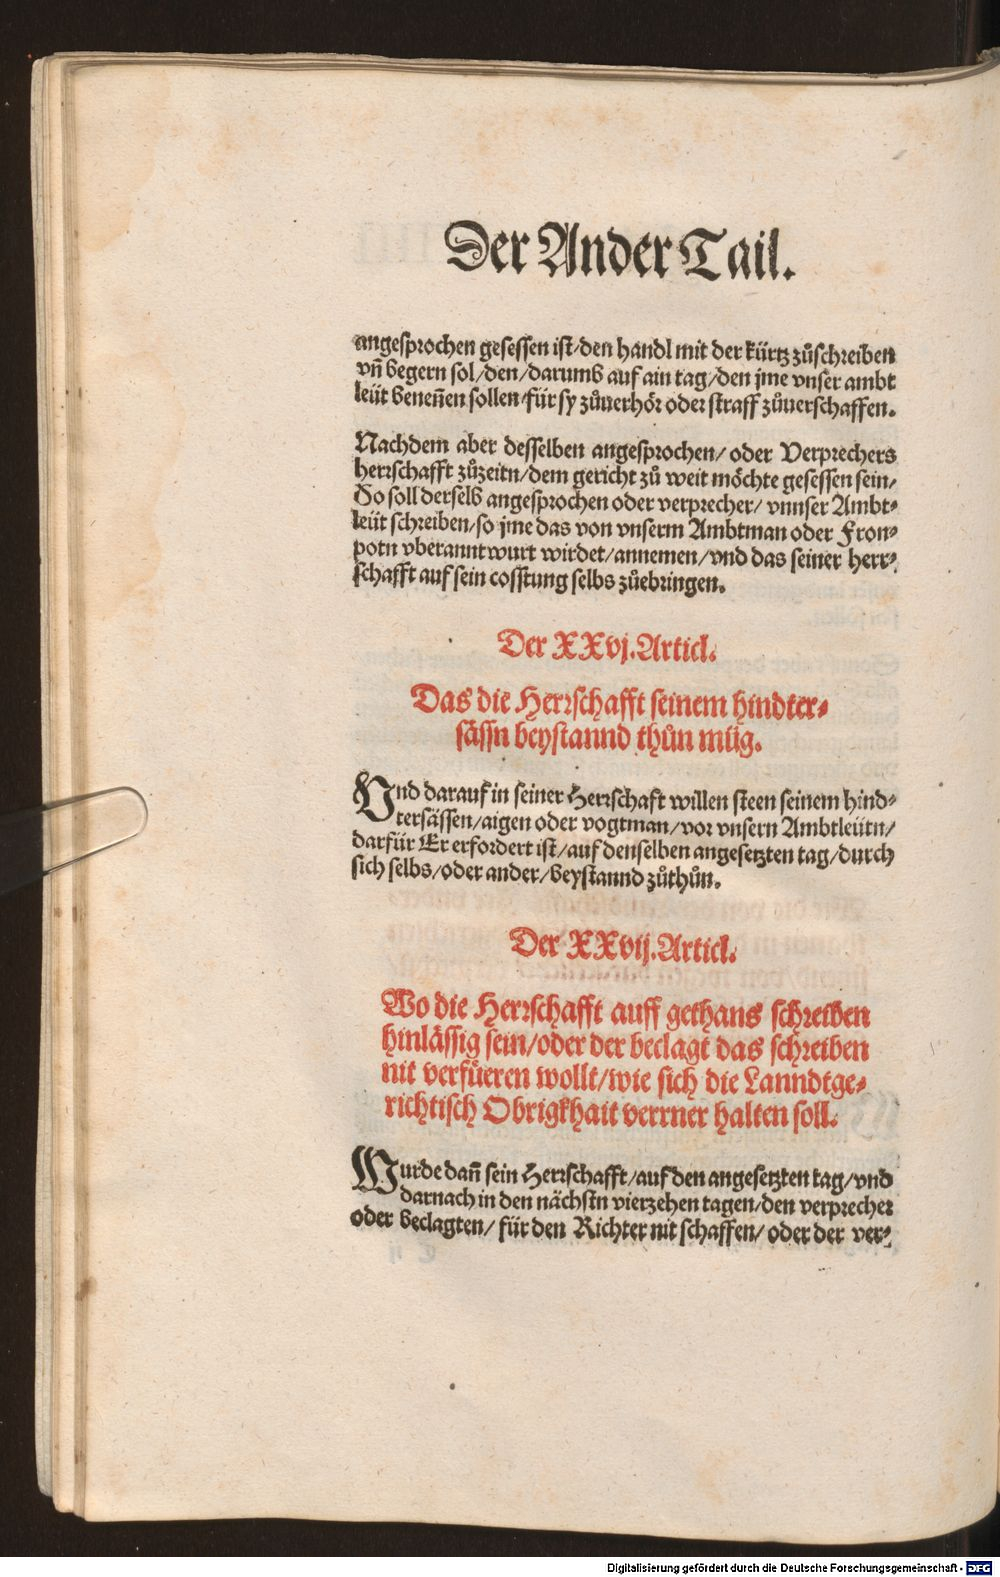 Der Ander Tail.
angesprochen gesessen ist/den handl mit der kürtz zůschreiben
vñ begern sol/den/darumb auf ain tag/den jme vnser ambt
leüt beneñen sollen/für sy zůuerhör oder straff zůuerschaffen.
Nachdem aber desselben angesprochen/ oder Verprechers
herrschafft zůzeitn/dem gericht zů weit möchte gesessen sein/
So soll derselb angesprochen oder verprecher/ vnnser Ambt-
leüt schreiben/so jme das von vnserm Ambtman oder Fron-
potn vberanntwurt wirdet/annemen/vnd das seiner herr-
schafft auf sein cosstung selbs zůebringen.
Der XXvj. Articl.
Das die Herrschafft seinem hindter-
sässn beystannd thůn müg.
Vnd darauf in seiner Herrschaft willen steen seinem hind-
tersässen/aigen oder vogtman/vor vnsern Ambtleütn/
darfür Er erfordert ist/auf denselben angesetzten tag/durch
sich selbs/oder ander/beystannd zůthůn.
Der XXvij. Articl.
Wo die Herrschafft auff gethans schreiben
hinlässig sein/oder der beclagt das schreiben
nit verfüeren wollt/wie sich die Lanndtge-
richtisch Obrigkhait verrner halten soll.
Wurde dañ sein Herrschafft/auf den angesetzten tag/vnd
darnach in den nächstn vierzehen tagen/den verprecher
oder beclagten/ für den Richter nit schaffen/ oder der ver-
Digitalisierung gefördert durch die Deutsche Forschungsgemeinschaft - DFG